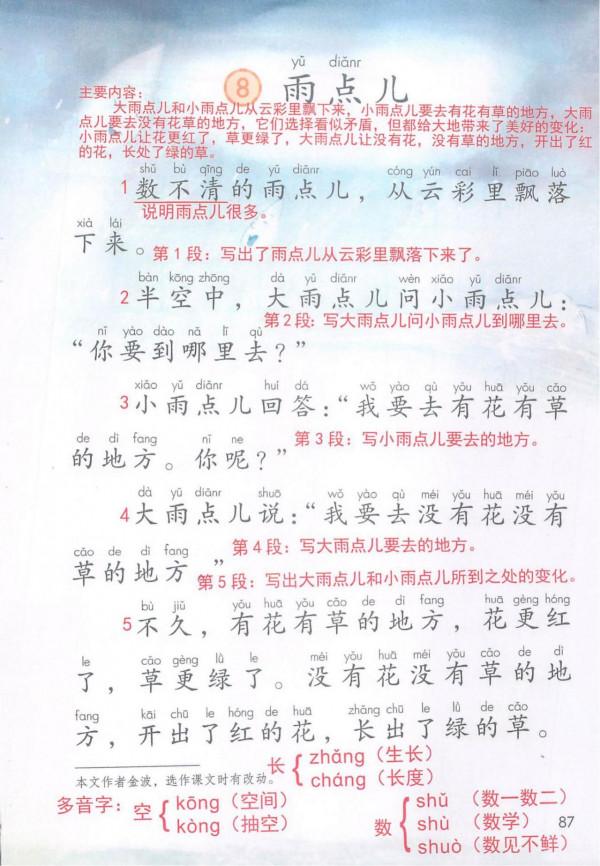 yǔ diǎnr
8 雨点儿
主要内容：
大雨点儿和小雨点儿从云彩里飘下来，小雨点儿要去有花有草的地方，大雨
点儿要去没有花草的地方，它们选择看似矛盾，但都给大地带来了美好的变化：
小雨点儿让花更红了，草更绿了，大雨点儿让没有花，没有草的地方，开出了红
的花，长处了绿的草。
shǔ bù qīng de yǔ diǎnr cóng yún cai lǐ piāo luò
1 数不清的雨点儿，从云彩里飘落
说明雨点儿很多。
xià lái
下来。
第1段：写出了雨点儿从云彩里飘落下来了。
bàn kōng zhōng dà yǔ diǎnr wèn xiǎo yǔ diǎnr
2 半空中，大雨点儿问小雨点儿：
第2段：写大雨点儿问小雨点儿到哪里去。
nǐ yào dào nǎ lǐ qù
“你要到哪里去？”
xiǎo yǔ diǎnr huí dá wǒ yào qù yǒu huā yǒu cǎo
3 小雨点儿回答：“我要去有花有草
de dì fang nǐ ne
的地方。你呢？”
第3段：写小雨点儿要去的地方。
dà yǔ diǎnr shuō wǒ yào qù méi yǒu huā méi yǒu
4 大雨点儿说：“我要去没有花没有
cǎo de dì fang
草的地方。”
第4段：写大雨点儿要去的地方。
第5段：写出大雨点儿和小雨点儿所到之处的变化。
bù jiǔ yǒu huā yǒu cǎo de dì fang huā gèng hóng
5 不久，有花有草的地方，花更红
le cǎo gèng lǜ le méi yǒu huā méi yǒu cǎo de dì
了，草更绿了。没有花没有草的地
fang kāi chū le hóng de huā zhǎng chū le lǜ de cǎo
方，开出了红的花，长出了绿的草。
本文作者金波，选作课文时有改动。
长 zhǎng（生长）
cháng（长度）
多音字：空 kōng（空间）
kòng（抽空）
数 shǔ （数一数二）
shù （数学）
shuò（数见不鲜）
87